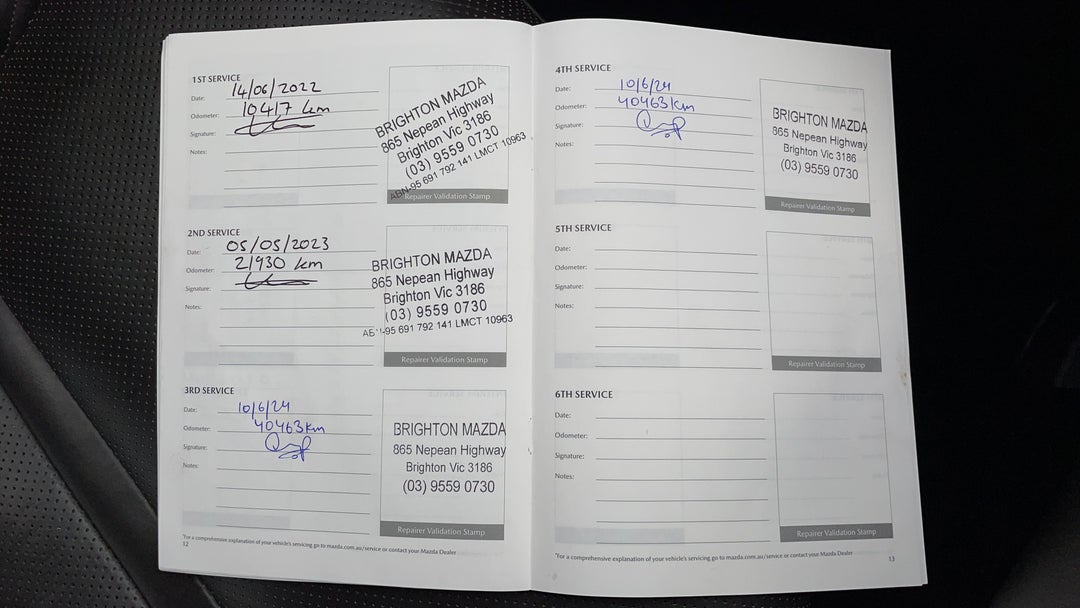 1ST SERVICE
Date: 14/06/2022
Odometer: 10417 km
Signature:
Notes:
BRIGHTON MAZDA
865 Nepean Highway
Brighton Vic 3186
(03) 9559 0730
ABN-95 691 792 141 LMCT 10963
Repairer Validation Stamp
2ND SERVICE
Date: 05/05/2023
Odometer: 21930 km
Signature:
Notes:
BRIGHTON MAZDA
865 Nepean Highway
Brighton Vic 3186
(03) 9559 0730
ABN-95 691 792 141 LMCT 10963
Repairer Validation Stamp
3RD SERVICE
Date: 10/6/24
Odometer: 40463km
Signature:
Notes:
BRIGHTON MAZDA
865 Nepean Highway
Brighton Vic 3186
(03) 9559 0730
Repairer Validation Stamp
*For a comprehensive explanation of your vehicle's servicing go to mazda.com.au/service or contact your Mazda Dealer
12
4TH SERVICE
Date: 10/6/24
Odometer: 40463km
Signature:
Notes:
BRIGHTON MAZDA
865 Nepean Highway
Brighton Vic 3186
(03) 9559 0730
Repairer Validation Stamp
5TH SERVICE
Date:
Odometer:
Signature:
Notes:
Repairer Validation Stamp
6TH SERVICE
Date:
Odometer:
Signature:
Notes:
Repairer Validation Stamp
*For a comprehensive explanation of your vehicle's servicing go to mazda.com.au/service or contact your Mazda Dealer
13